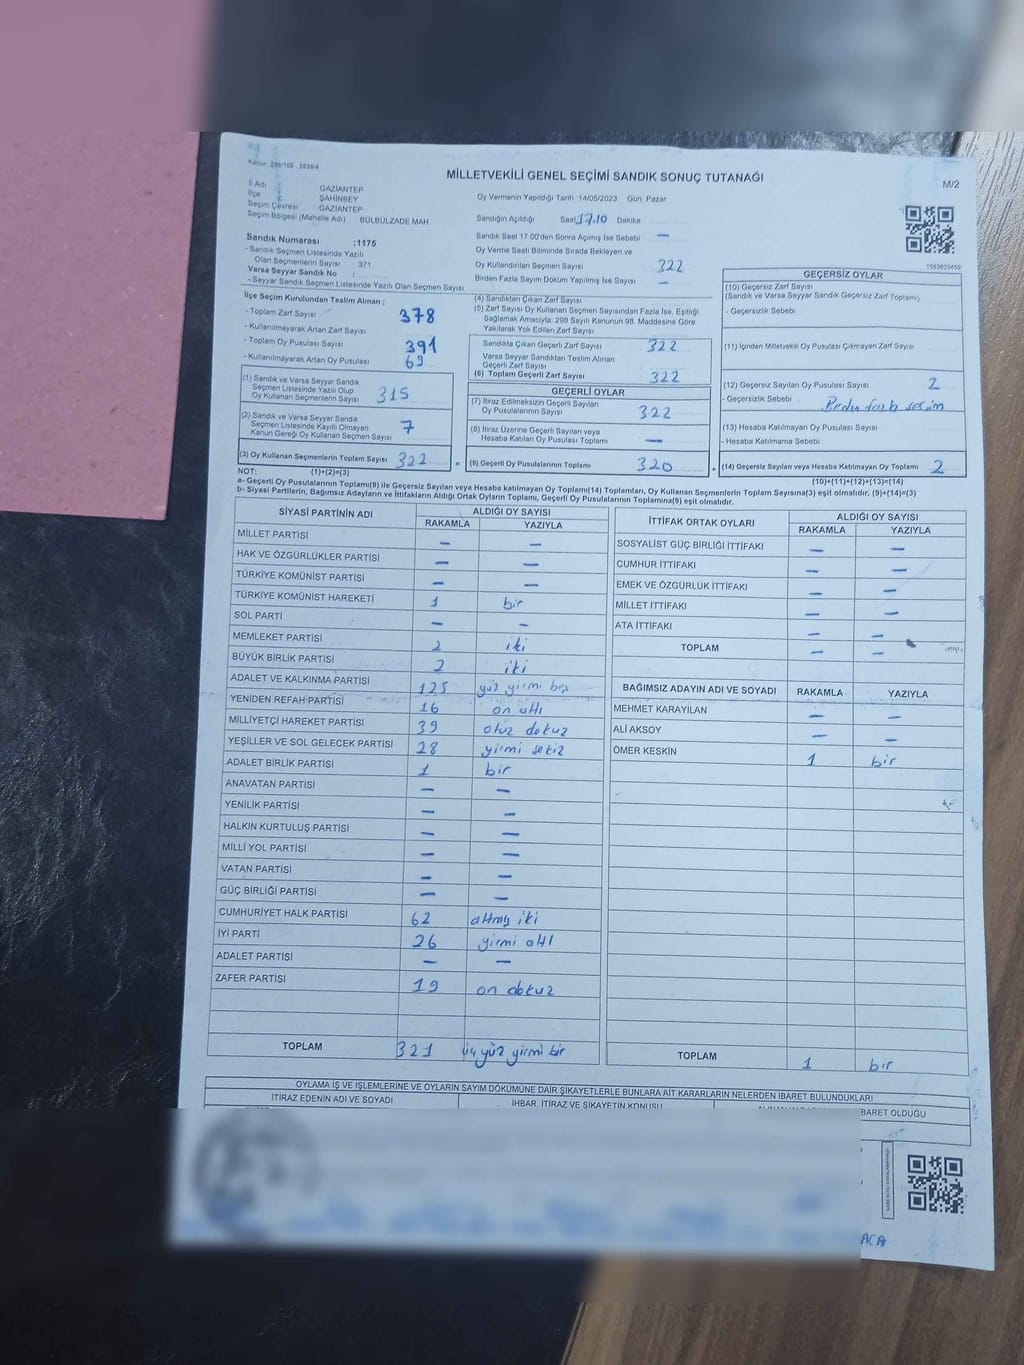 Kanun 298/108 . 2839/4
MİLLETVEKİLİ GENEL SEÇİMİ SANDIK SONUÇ TUTANAĞI
M/2
İl Adı GAZİANTEP
İlçe ŞAHİNBEY
Seçim Çevresi : GAZİANTEP
Seçim Bölgesi (Mahalle Adı) : BÜLBÜLZADE MAH.
Oy Vermenin Yapıldığı Tarih :14/05/2023 Gün Pazar
Sandığın Açıldığı Saat 17.10 Dakika
Sandık Numarası :1175
- Sandık Seçmen Listesinde Yazılı
Olan Seçmenlerin Sayısı : 371
Varsa Seyyar Sandık No :
- Seyyar Sandık Seçmen Listesinde Yazılı Olan Seçmen Sayısı :
Sandık Saat 17:00'den Sonra Açılmış İse Sebebi —
Oy Verme Saati Bitiminde Sırada Bekleyen ve
Oy Kullandırılan Seçmen Sayısı 322
Birden Fazla Sayım Döküm Yapılmış İse Sayısı —
1053633459
İlçe Seçim Kurulundan Teslim Alınan ;
- Toplam Zarf Sayısı 378
- Kullanılmayarak Artan Zarf Sayısı
- Toplam Oy Pusulası Sayısı 391
- Kullanılmayarak Artan Oy Pusulası 69
(1) Sandık ve Varsa Seyyar Sandık
Seçmen Listesinde Yazılı Olup
Oy Kullanan Seçmenlerin Sayısı 315
(2) Sandık ve Varsa Seyyar Sandık
Seçmen Listesinde Kayıtlı Olmayan
Kanun Gereği Oy Kullanan Seçmen Sayısı 7
(3) Oy Kullanan Seçmenlerin Toplam Sayısı 322
(4) Sandıktan Çıkan Zarf Sayısı
(5) Zarf Sayısı Oy Kullanan Seçmen Sayısından Fazla İse, Eşitliği
Sağlamak Amacıyla, 298 Sayılı Kanunun 98. Maddesine Göre
Yakılarak Yok Edilen Zarf Sayısı
Sandıkta Çıkan Geçerli Zarf Sayısı 322
Varsa Seyyar Sandıktan Teslim Alınan
Geçerli Zarf Sayısı
(6) Toplam Geçerli Zarf Sayısı 322
GEÇERLİ OYLAR
(7) İtiraz Edilmeksizin Geçerli Sayılan
Oy Pusulalarının Sayısı 322
(8) İtiraz Üzerine Geçerli Sayılan veya
Hesaba Katılan Oy Pusulası Toplamı —
= (9) Geçerli Oy Pusulalarının Toplamı 320
GEÇERSİZ OYLAR
(10) Geçersiz Zarf Sayısı
(Sandık ve Varsa Seyyar Sandık Geçersiz Zarf Toplamı)
- Geçersizlik Sebebi
(11) İçinden Milletvekili Oy Pusulası Çıkmayan Zarf Sayısı
(12) Geçersiz Sayılan Oy Pusulası Sayısı 2
- Geçersizlik Sebebi seçim
(13) Hesaba Katılmayan Oy Pusulası Sayısı
- Hesaba Katılmama Sebebi
+ (14) Geçersiz Sayılan veya Hesaba Katılmayan Oy Toplamı 2
NOT: (1)+(2)=(3)
(10)+(11)+(12)+(13)=(14)
a- Geçerli Oy Pusulalarının Toplamı(9) ile Geçersiz Sayılan veya Hesaba Katılmayan Oy Toplamı(14) Toplamları, Oy Kullanan Seçmenlerin Toplam Sayısına(3) eşit olmalıdır. (9)+(14)=(3)
b- Siyasi Partilerin, Bağımsız Adayların ve İttifakların Aldığı Ortak Oyların Toplamı, Geçerli Oy Pusulalarının Toplamına(9) eşit olmalıdır.
SİYASİ PARTİNİN ADI ALDIĞI OY SAYISI
RAKAMLA YAZIYLA
MİLLET PARTİSİ — —
HAK VE ÖZGÜRLÜKLER PARTİSİ — —
TÜRKİYE KOMÜNİST PARTİSİ — —
TÜRKİYE KOMÜNİST HAREKETİ 1 bir
SOL PARTİ — —
MEMLEKET PARTİSİ 2 iki
BÜYÜK BİRLİK PARTİSİ 2 iki
ADALET VE KALKINMA PARTİSİ 125 yüz yirmi beş
YENİDEN REFAH PARTİSİ 16 on altı
MİLLİYETÇİ HAREKET PARTİSİ 39 otuz dokuz
YEŞİLLER VE SOL GELECEK PARTİSİ 28 yirmi sekiz
ADALET BİRLİK PARTİSİ 1 bir
ANAVATAN PARTİSİ — —
YENİLİK PARTİSİ — —
HALKIN KURTULUŞ PARTİSİ — —
MİLLİ YOL PARTİSİ — —
VATAN PARTİSİ — —
GÜÇ BİRLİĞİ PARTİSİ — —
CUMHURİYET HALK PARTİSİ 62 altmış iki
İYİ PARTİ 26 yirmi altı
ADALET PARTİSİ — —
ZAFER PARTİSİ 19 on dokuz
TOPLAM 321 üçyüz yirmi bir
İTTİFAK ORTAK OYLARI ALDIĞI OY SAYISI
RAKAMLA YAZIYLA
SOSYALİST GÜÇ BİRLİĞİ İTTİFAKI — —
CUMHUR İTTİFAKI — —
EMEK VE ÖZGÜRLÜK İTTİFAKI — —
MİLLET İTTİFAKI — —
ATA İTTİFAKI — —
TOPLAM — —
BAĞIMSIZ ADAYIN ADI VE SOYADI RAKAMLA YAZIYLA
MEHMET KARAYILAN — —
ALİ AKSOY — —
ÖMER KESKİN 1 bir
TOPLAM 1 bir
OYLAMA İŞ VE İŞLEMLERİNE VE OYLARIN SAYIM DÖKÜMÜNE DAİR ŞİKAYETLERLE BUNLARA AİT KARARLARIN NELERDEN İBARET BULUNDUKLARI
İTİRAZ EDENİN ADI VE SOYADI İHBAR, İTİRAZ VE ŞİKAYETİN KONUSU BARET OLDUĞU